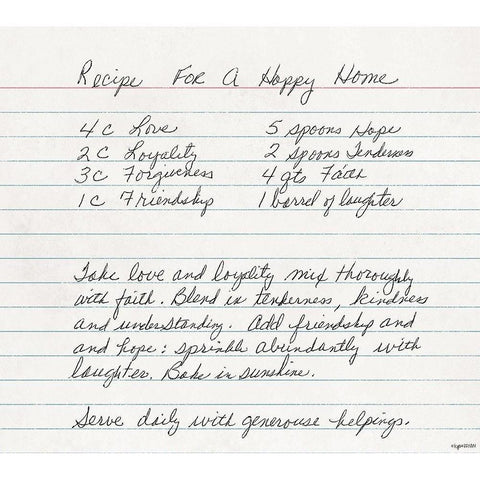 Recipe For A Happy Home
4 c Love 5 spoons Hope
2 c Loyality 2 spoons Tenderness
3c Forgiveness 4 qts Faith
1 c Friendship 1 barrel of laughter
Take love and loyality mix thoroughly
with faith. Blend in tenderness, kindness
and understanding. Add friendship and
and hope: sprinkle abundantly with
laughter. Bake in sunshine.
Serve daily with generouse helpings.